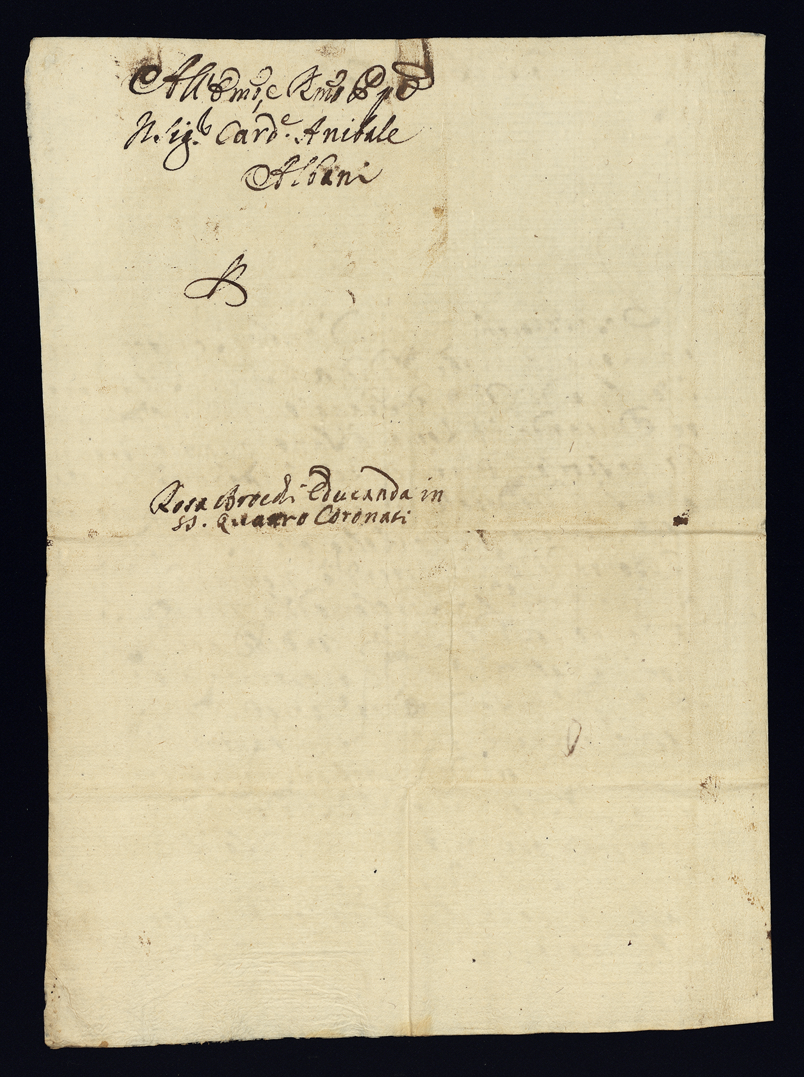 All' Em͞o, e Rm͞o P͞pe
Il Sig.r Card.e Anibale
Albani
Rosa Broedi Educanda in
SS. Quattro Coronati